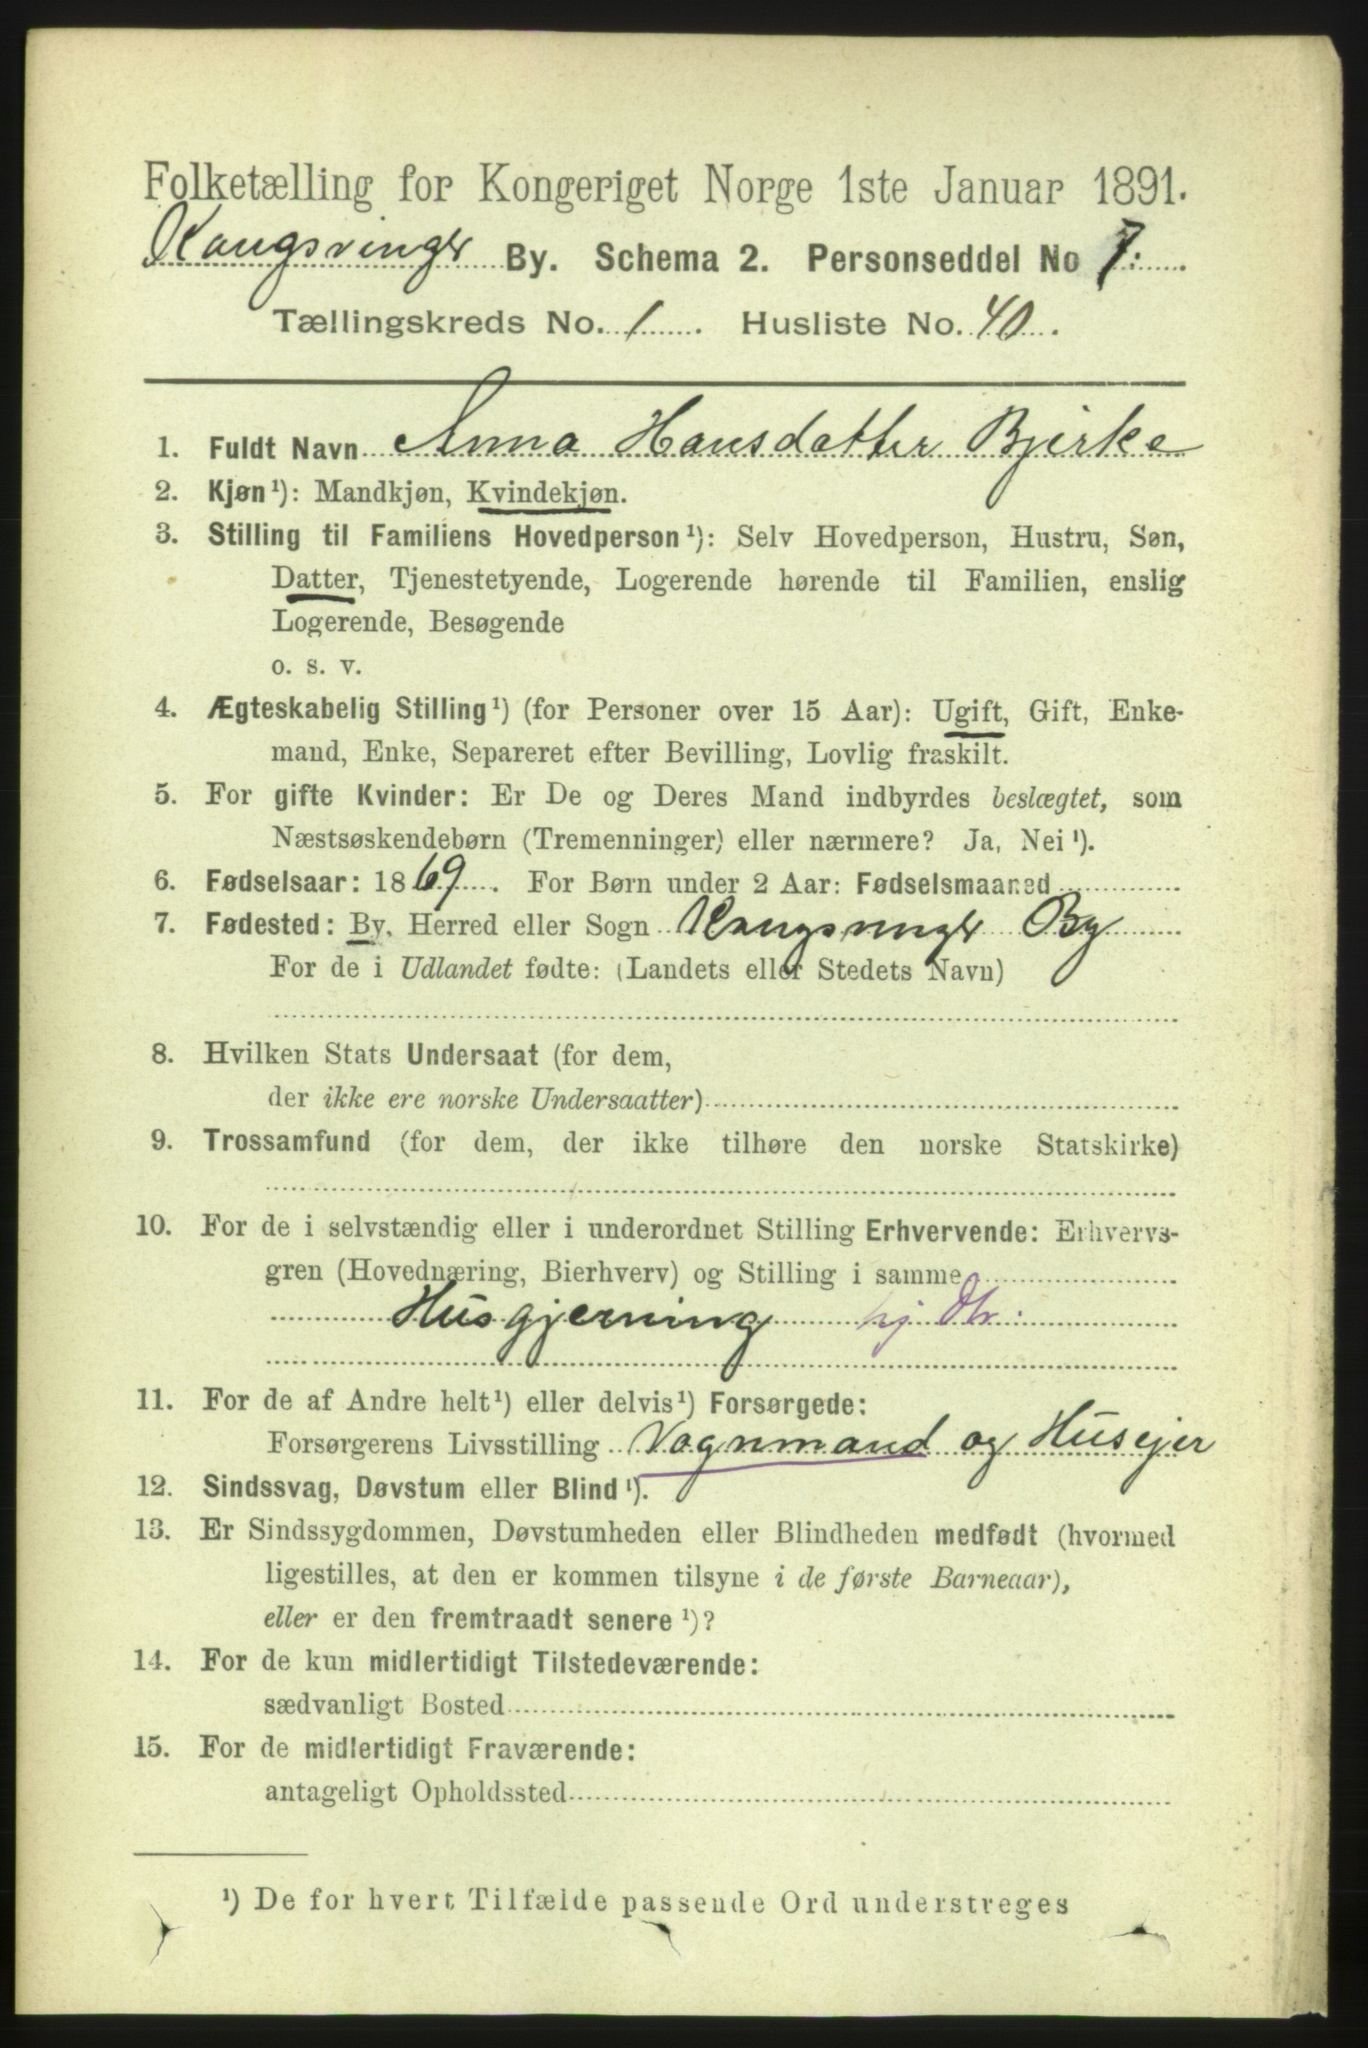 Folketælling for Kongeriget Norge 1ste Januar 1891.
Kongsvinger By. Schema 2. Personseddel No 7.
Tællingskreds No. 1. Husliste No. 40.
1. Fuldt Navn Anna Hansdatter Bjerke
2. Kjøn¹): Mandkjøn, Kvindekjøn.
3. Stilling til Familiens Hovedperson¹): Selv Hovedperson, Hustru, Søn,
Datter, Tjenestetyende, Logerende hørende til Familien, enslig
Logerende, Besøgende
o. s. v.
4. Ægteskabelig Stilling¹) (for Personer over 15 Aar): Ugift, Gift, Enke-
mand, Enke, Separeret efter Bevilling, Lovlig fraskilt.
5. For gifte Kvinder: Er De og Deres Mand indbyrdes beslægtet, som
Næstsøskendebørn (Tremenninger) eller nærmere? Ja, Nei¹).
6. Fødselsaar: 1869. For Børn under 2 Aar: Fødselsmaaned
7. Fødested: By, Herred eller Sogn Kongsvinger By
For de i Udlandet fødte: (Landets eller Stedets Navn)
8. Hvilken Stats Undersaat (for dem,
der ikke ere norske Undersaatter)
9. Trossamfund (for dem, der ikke tilhøre den norske Statskirke)
10. For de i selvstændig eller i underordnet Stilling Erhvervende: Erhvervs-
gren (Hovednæring, Bierhverv) og Stilling i samme
Husgjerning hj Dtr.
11. For de af Andre helt¹) eller delvis¹) Forsørgede:
Forsørgerens Livsstilling Vognmand og Husejer
12. Sindssvag, Døvstum eller Blind¹).
13. Er Sindssygdommen, Døvstumheden eller Blindheden medfødt (hvormed
ligestilles, at den er kommen tilsyne i de første Barneaar),
eller er den fremtraadt senere¹)?
14. For de kun midlertidigt Tilstedeværende:
sædvanligt Bosted
15. For de midlertidigt Fraværende:
antageligt Opholdssted
¹) De for hvert Tilfælde passende Ord understreges